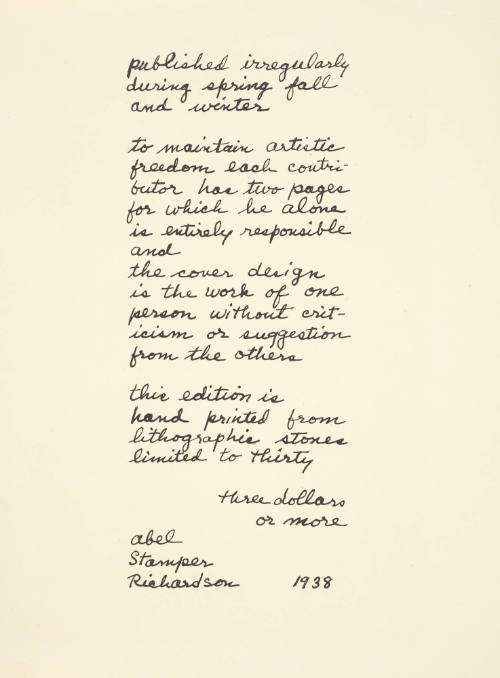 published irregularly
during spring fall
and winter
to maintain artistic
freedom each contri-
butor has two pages
for which he alone
is entirely responsible
and
the cover design
is the work of one
person without crit-
icism or suggestion
from the others
this edition is
hand printed from
lithographic stones
limited to thirty
three dollars
or more
abel
Stamper
Richardson 1938